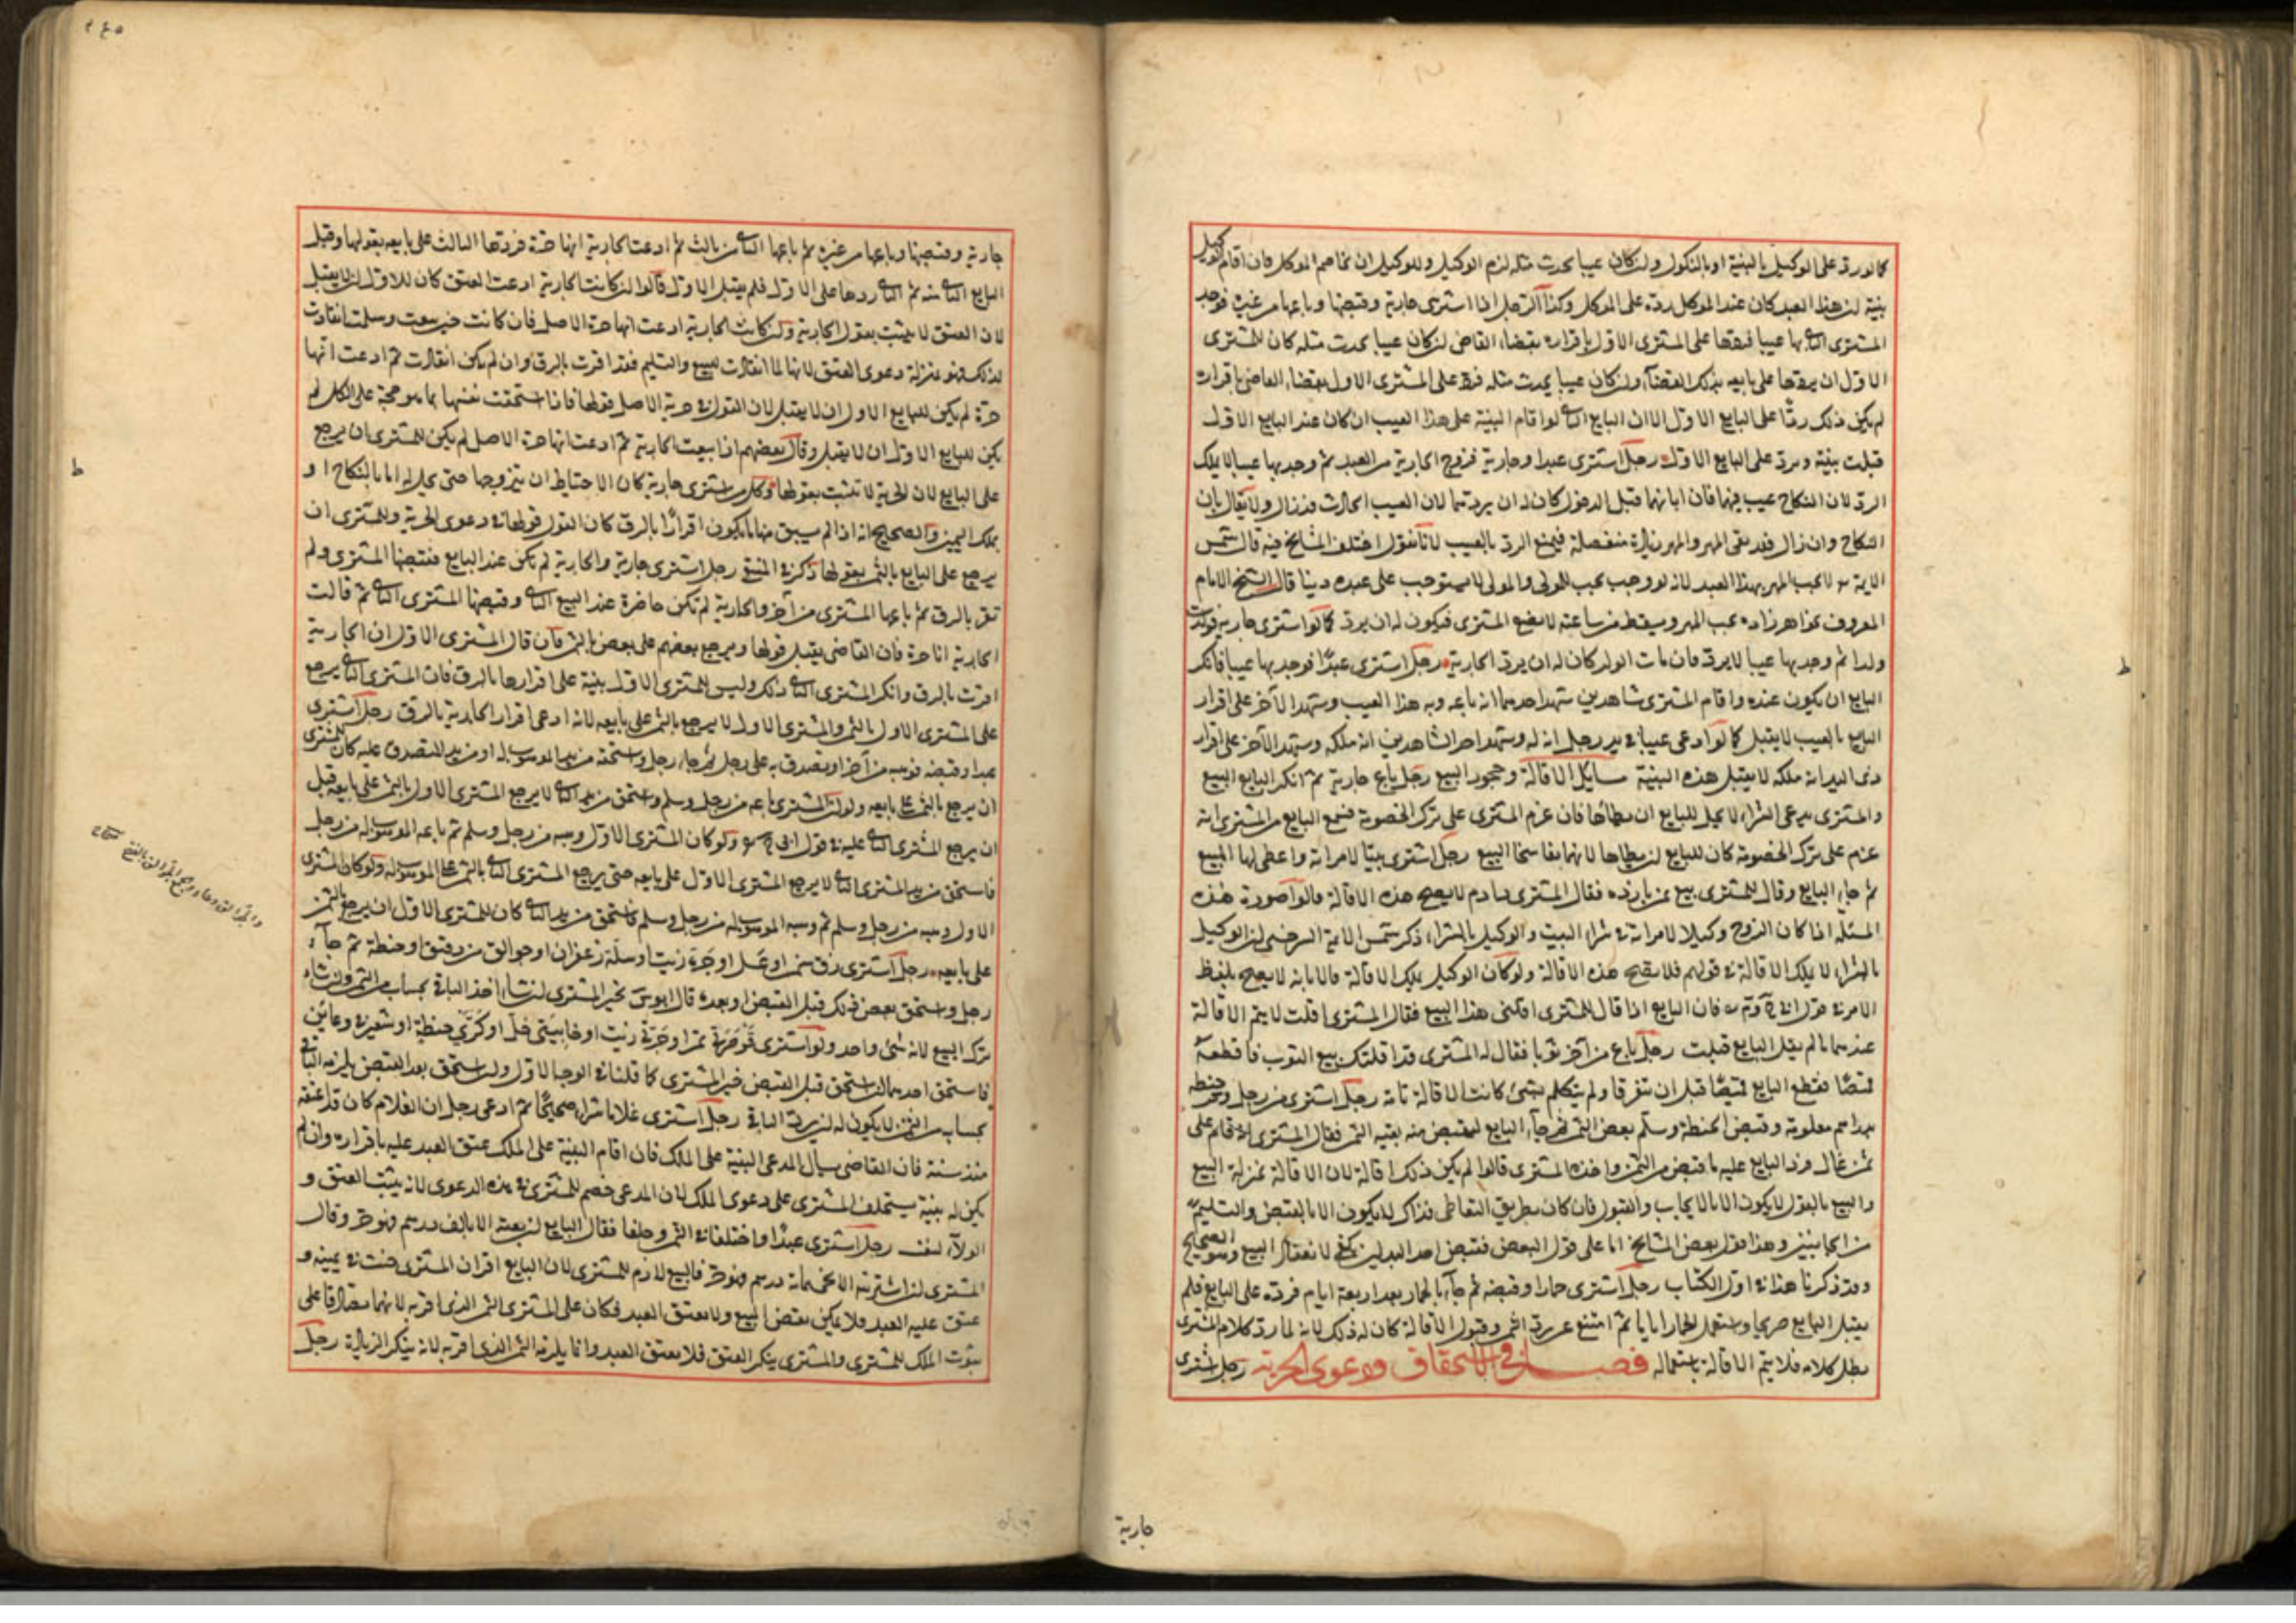 كما لو رد على الوكيل بالبينة او بالنكول ولن كان عيبا يحدث مثله لزم الوكيل وللوكيل ان يخاصم الموكل فان اقام الوكيل
بينة لن هذا العبد كان عند الموكل رده على الموكل وكذا الرجل اذا اشترى جارية وقبضها وباعها من غيره فوجد
المشترى الثانى بها عيبا فردها على المشترى الاول باقراره بقضاء القاضى لن كان عيبا يحدث مثله كان للمشترى
الاول ان يردها على بايعه بذلك القضاء ولن كان عيبا يحدث مثله فرد على المشترى الاول بقضاء القاضى باقراره
لم يكن ذلك ردا على البايع الاول الا ان البايع الثانى لو اقام البينة على هذا العيب ان كان عند البايع الاول
قبلت بينته ويرد على البايع الاول رجل اشترى عبدا وجارية فزوج الجارية من العبد ثم وجد بها عيبا لا يملك
الرد لان النكاح عيب فيها فان ابانها قبل الدخول كان له ان يردها لان العيب الحادث قد زال ولا يقال بان
النكاح وان زال فقد بقى المهر والمهر زيادة منفصلة فيمنع الرد بالعيب لانا نقول اختلف المشايخ فيه قال شمس
الايمة لا يجب المهر بهذا العبد لانه لو وجب يجب للمولى والمولى لا يستوجب على عبده دينا قال الشيخ الامام
المعروف بخواهرزاده يجب المهر ويسقط من ساعته لا بصنع المشترى فيكون له ان يرد كما لو اشترى جارية فولدت
ولدا ثم وجد بها عيبا لا يرد فان مات الولد كان له ان يرد الجارية رجل اشترى عبدا فوجد بها عيبا فانكر
البايع ان يكون عنده واقام المشترى شاهدين شهد احدهما انه باعه وبه هذا العيب وشهد الآخر على اقرار
البايع بالعيب لا يقبل كما لو ادعى عينا فى يد رجل انه له وشهد احد الشاهدين انه ملكه وشهد الآخر على اقرار
ذى اليد انه ملكه لا يقبل هذه البينة مسايل الاقالة وجحود البيع رجل باع جارية ثم انكر البايع البيع
والمشترى يدعى الشراء لا يحل للبايع ان يطأها فان عزم المشترى على ترك الخصومة فسمع البايع من المشترى انه
عزم على ترك الخصومة كان للبايع لن يطأها لانهما تفاسخا البيع رجل اشترى بيتا لامراته واعطى لها المبيع
ثم جاء البايع وقال للمشترى بيع بمن باز ده فقال المشترى دادم لا يصح هذه الاقالة قالوا صورة هذه
المسئلة اذا كان الزوج وكيلا لامراته فى شراء البيت والوكيل بالشراء ذكر شمس الايمة السرخسى لن الوكيل
بالشراء لا يملك الاقالة فى قولهم فلا يصح هذه الاقالة ولو كان الوكيل يملك الاقالة فالاقالة لا يصح بلفظ
الامر فى قول فان البايع اذا قال للمشترى اقلنى هذا البيع فقال المشترى اقلت لا يتم الاقالة
عندهما ما لم يقل البايع قبلت رجل باع من آخر ثوبا فقال له المشترى قد اقلتك بيع الثوب فاقطعه
قميصا فقطع البايع قميصا قبل ان يتفرقا ولم يتكلم بشئ كانت الاقالة تامة رجل اشترى من رجل وقر حنطة
بدراهم معلومة وقبض الحنطة وسلم بعض الثمن ثم جاء البايع ليقبض منه بقية الثمن فقال المشترى انه قام على
بثمن غال فرد البايع عليه ما قبض من الثمن واخذه المشترى قالوا لم يكن ذلك اقالة لان الاقالة بمنزلة البيع
والبيع بالقول لا يكون الا بالايجاب والقبول فان كان بطريق التعاطى فذاك لا يكون الا بالقبض والتسليم
من الجانبين وهذا قول بعض المشايخ اما على قول البعض فقبض احد البدلين يكفى لانعقاد البيع وهو الصحيح
وقد ذكرنا هذا فى اول الكتاب رجل اشترى حمارا وقبضه ثم جاء بالحمار بعد اربعة ايام فرده على البايع فلم
يقبل البايع صريحا واستعمل الحمار اياما ثم امتنع عن رد الثمن وقبول الاقالة كان له ذلك لانه لما رد كلام المشترى
بطل كلامه فلا يتم الاقالة باستعماله فصل فى الاستحقاق ودعوى الحرية رجل اشترى
جارية
٢٤٥
جارية وقبضها وباعها من غيره ثم باعها الثانى من ثالث ثم ادعت الجارية انها حرة فردها الثالث على بايعه بقولها وقبل
البايع الثانى منه ثم الثانى ردها على الاول فلم يقبل الاول قالوا لن كانت الجارية ادعت العتق كان للاول لن لا يقبل
لان العتق لا يثبت بقول الجارية ولن كانت الجارية ادعت انها حرة الاصل فان كانت حين بيعت وسلمت انقادت
لذلك فهو بمنزلة دعوى العتق لانها لما انقادت للبيع والتسليم فقد اقرت بالرق وان لم يكن انقادت ثم ادعت انها
حرة لم يكن للبايع الاول ان لا يقبل لان القول فى حرية الاصل قولها فاذا استحقت نفسها بما هو حجة على الكل لم
يكن للبايع الاول ان لا يقبل وقال بعضهم اذا بيعت الجارية ثم ادعت انها حرة الاصل لم يكن للمشترى ان يرجع
على البايع لان الحرية لا تثبت بقولها وكل من اشترى جارية كان الاحتياط ان يتزوجها حتى يحل له اما بالنكاح او
بملك اليمين والصحيح انه اذا لم يسبق منها ما يكون اقرارا بالرق كان القول قولها فى دعوى الحرية وللمشترى ان
يرجع على البايع بالثمن بقولها ذكره فى المنتقى رجل اشترى جارية والجارية لم تكن عند البايع فقبضها المشترى ولم
تقر بالرق ثم باعها المشترى من آخر والجارية لم تكن حاضرة عند البيع الثانى وقبضها المشترى الثانى ثم قالت
الجارية انا حرة فان القاضى يقبل قولها ويرجع بعضهم على بعض بالثمن فان قال المشترى الاول ان الجارية
اقرت بالرق وانكر المشترى الثانى ذلك وليس للمشترى الاول بينة على اقرارها بالرق فان المشترى الثانى يرجع
على المشترى الاول بالثمن والمشترى الاول لا يرجع بالثمن على بايعه لانه ادعى اقرار الجارية بالرق رجل اشترى
عبدا وقبضه فوهبه من آخر او تصدق به على رجل ثم جاء رجل واستحقه من يد الموهوب له او من يد المتصدق عليه كان للمشترى
ان يرجع بالثمن على بايعه ولو لن المشترى باعه من رجل وسلم واستحق من يد الثانى لا يرجع المشترى الاول بالثمن على بايعه قبل
ان يرجع المشترى الثانى عليه فى قول ابى ح ولو كان المشترى الاول وهبه من رجل وسلم ثم باعه الموهوب له من رجل
فاستحق من يد المشترى الثانى لا يرجع المشترى الاول على بايعه حتى يرجع المشترى الثانى بالثمن على الموهوب له ولو كان المشترى
الاول وهبه من رجل وسلم ثم وهبه الموهوب له من رجل وسلم فاستحق من يد الثانى كان للمشترى الاول ان يرجع بالثمن
على بايعه رجل اشترى زق سمن او عسل او جرة زيت او سلة زعفران او جوالق من دقيق او حنطة ثم جاء
رجل واستحق بعض ذلك قبل القبض او بعده قال ابو يوسف يخير المشترى لن شاء اخذ الباقى بحساب من الثمن ولن شاء
ترك البيع لانه شئ واحد ولو اشترى قوصرتى تمر او جرتى زيت او خابيتى خل او كرى حنطة او شعير فى وعائين
فاستحق احدهما لن استحق قبل القبض خير المشترى كما قلنا فى الوجه الاول ولن استحق بعد القبض يلزمه الباقى
بحسابه من الثمن لا يكون له لن يرد الباقى رجل اشترى غلاما شراء صحيحا ثم ادعى رجل ان الغلام كان قد اعتقه
منذ سنة فان القاضى يسال المدعى البينة على الملك فان اقام البينة على الملك عتق العبد عليه باقراره وان لم
يكن له بينة يستحلف المشترى على دعوى الملك لان المدعى خصم للمشترى فى هذه الدعوى لانه يثبت العتق و
الولاء لنفسه رجل اشترى عبدا واختلفا فى الثمن وحلفا فقال البايع لن بعته الا بالف درهم فهو حر وقال
المشترى لن اشتريته الا بخمسماية درهم فهو حر فالبيع لازم للمشترى لان البايع اقر ان المشترى حنث فى يمينه و
عتق عليه العبد فلا يمكن نقض البيع ولا يعتق العبد فكان على المشترى الثمن الذى اقر به لانهما تصادقا على
ثبوت الملك للمشترى والمشترى ينكر العتق فلا يعتق العبد وانما يلزمه الثمن الذى اقر به لانه ينكر الزيادة رجل